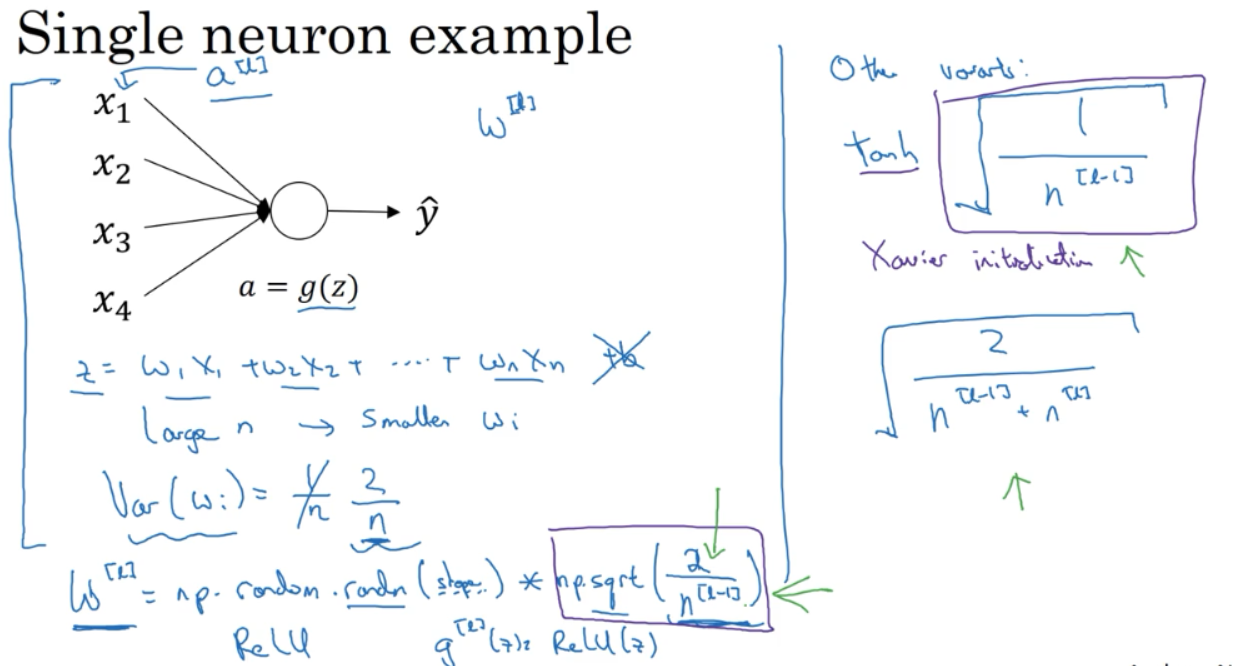 Single neuron example
a^[l]
x₁
x₂
x₃
x₄
w^[l]
ŷ
a = g(z)
z = w₁x₁ + w₂x₂ + ..... + wₙxₙ +b
Large n → Smaller wᵢ
Var(wᵢ) = 1/n 2/n
W^[l] = np.random.randn(shape) * np.sqrt(2/n^[l-1])
ReLU g^[l](z) = ReLU(z)
Other variants:
tanh √(1/n^[l-1])
Xavier initialization ↑
√(2/(n^[l-1] + n^[l]))
↑